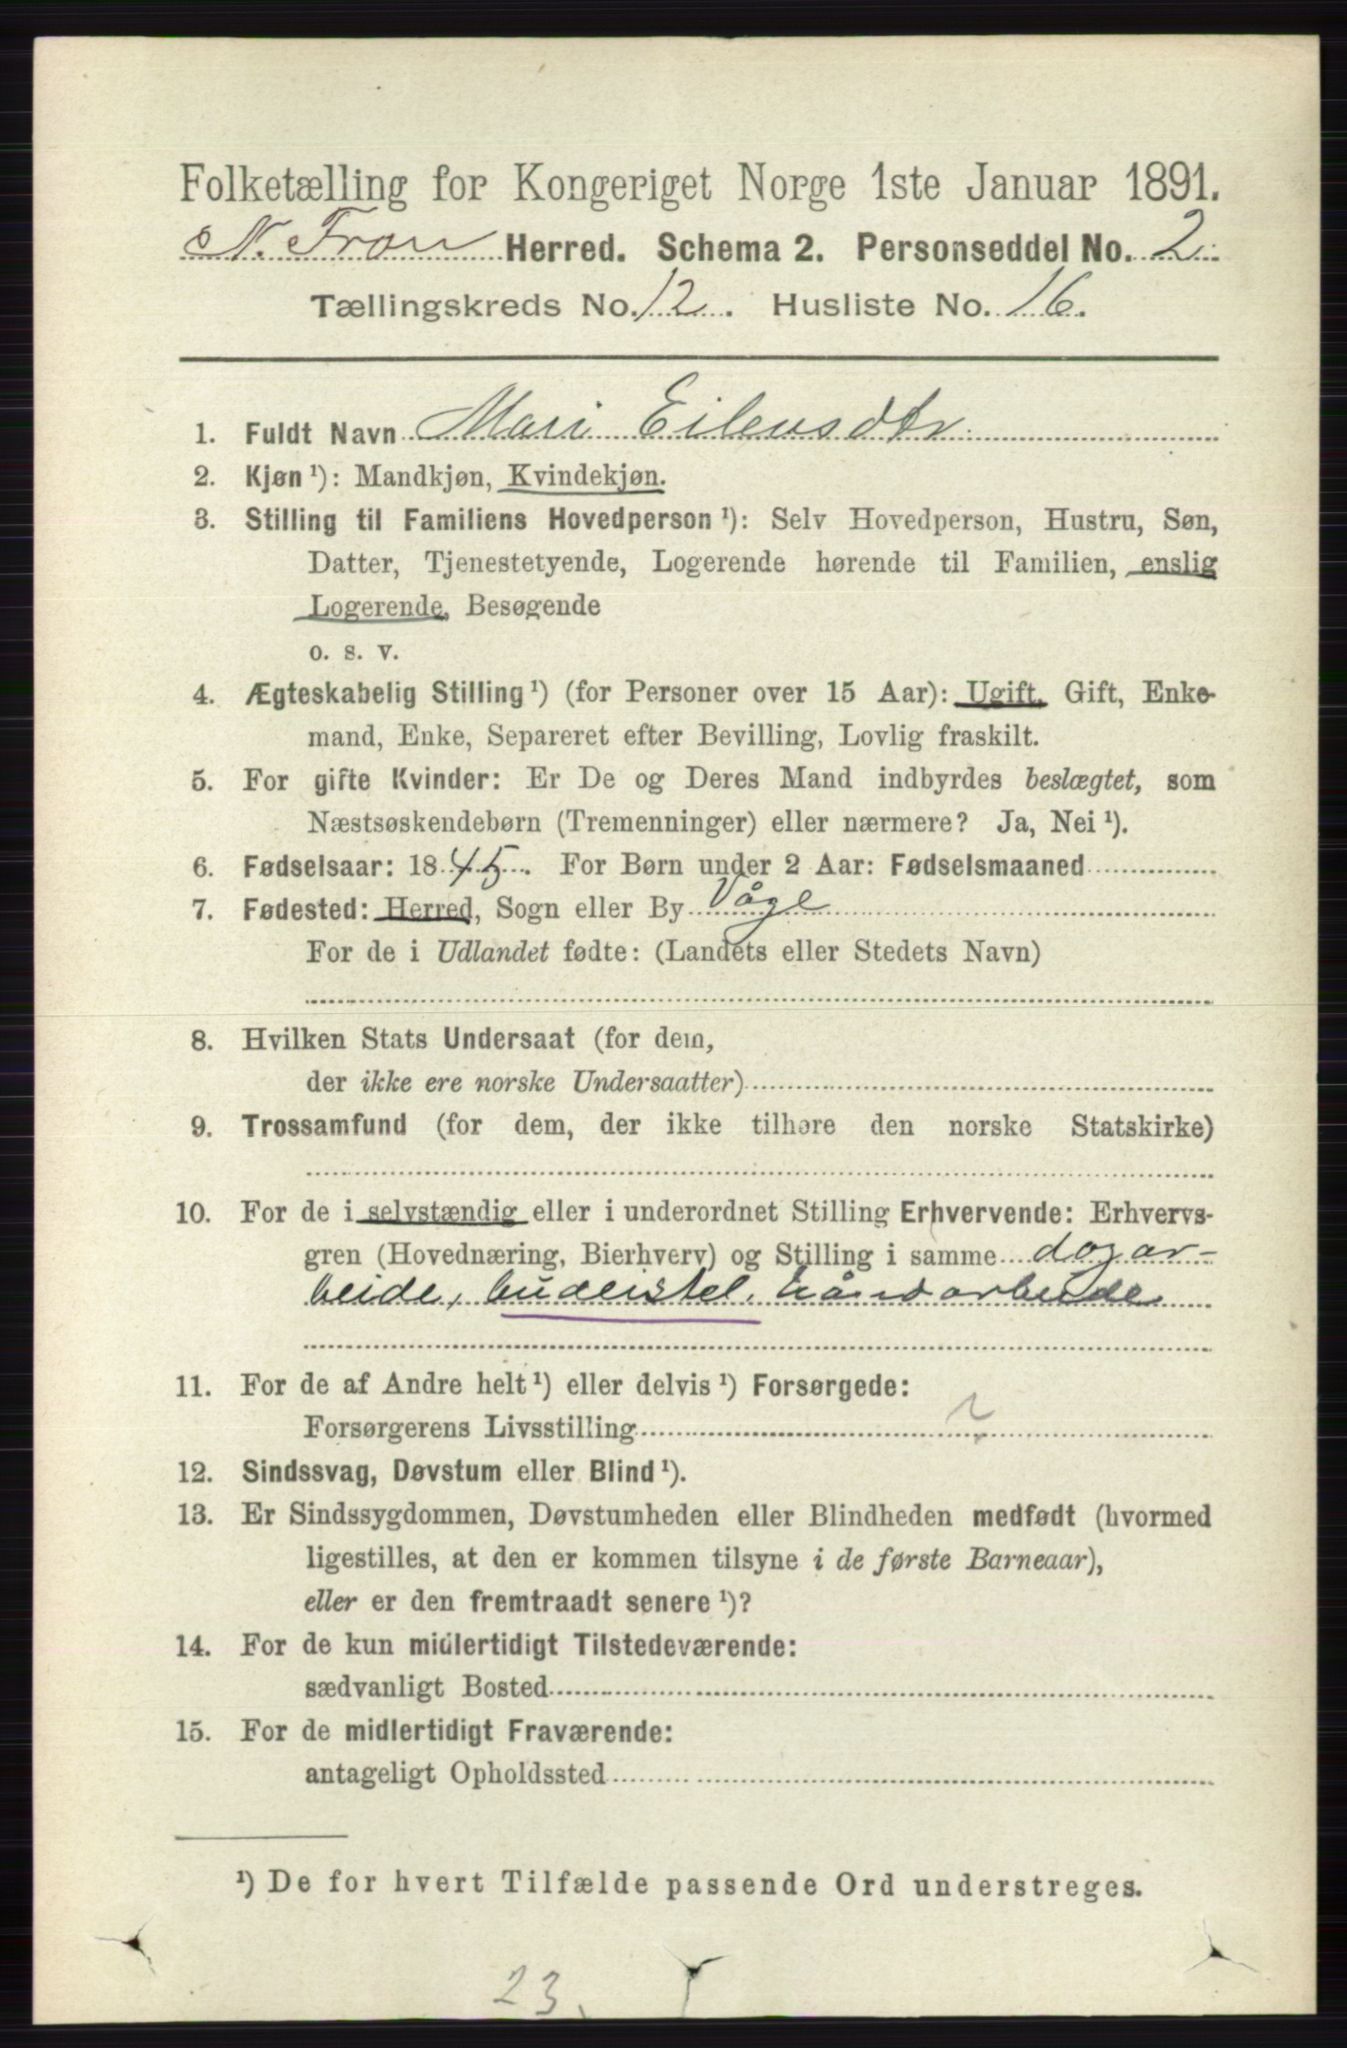 Folketælling for Kongeriget Norge 1ste Januar 1891.
N. Fron Herred. Schema 2. Personseddel No. 2
Tællingskreds No. 12. Husliste No. 16.
1. Fuldt Navn Mari Eilensdtr
2. Kjøn ¹): Mandkjøn, Kvindekjøn.
3. Stilling til Familiens Hovedperson ¹): Selv Hovedperson, Hustru, Søn,
Datter, Tjenestetyende, Logerende hørende til Familien, enslig
Logerende, Besøgende
o. s. v.
4. Ægteskabelig Stilling ¹) (for Personer over 15 Aar): Ugift, Gift, Enke-
mand, Enke, Separeret efter Bevilling, Lovlig fraskilt.
5. For gifte Kvinder: Er De og Deres Mand indbyrdes beslægtet, som
Næstsøskendebørn (Tremenninger) eller nærmere? Ja, Nei ¹).
6. Fødselsaar: 1845. For Børn under 2 Aar: Fødselsmaaned
7. Fødested: Herred, Sogn eller By Våge
For de i Udlandet fødte: (Landets eller Stedets Navn)
8. Hvilken Stats Undersaat (for dem,
der ikke ere norske Undersaatter)
9. Trossamfund (for dem, der ikke tilhøre den norske Statskirke)
10. For de i selvstændig eller i underordnet Stilling Erhvervende: Erhvervs-
gren (Hovednæring, Bierhverv) og Stilling i samme dagar-
beide, budeistel, håndarbeide
11. For de af Andre helt ¹) eller delvis ¹) Forsørgede:
Forsørgerens Livsstilling
12. Sindssvag, Døvstum eller Blind ¹).
13. Er Sindssygdommen, Døvstumheden eller Blindheden medfødt (hvormed
ligestilles, at den er kommen tilsyne i de første Barneaar),
eller er den fremtraadt senere ¹)?
14. For de kun midlertidigt Tilstedeværende:
sædvanligt Bosted
15. For de midlertidigt Fraværende:
antageligt Opholdssted
¹) De for hvert Tilfælde passende Ord understreges.
23.